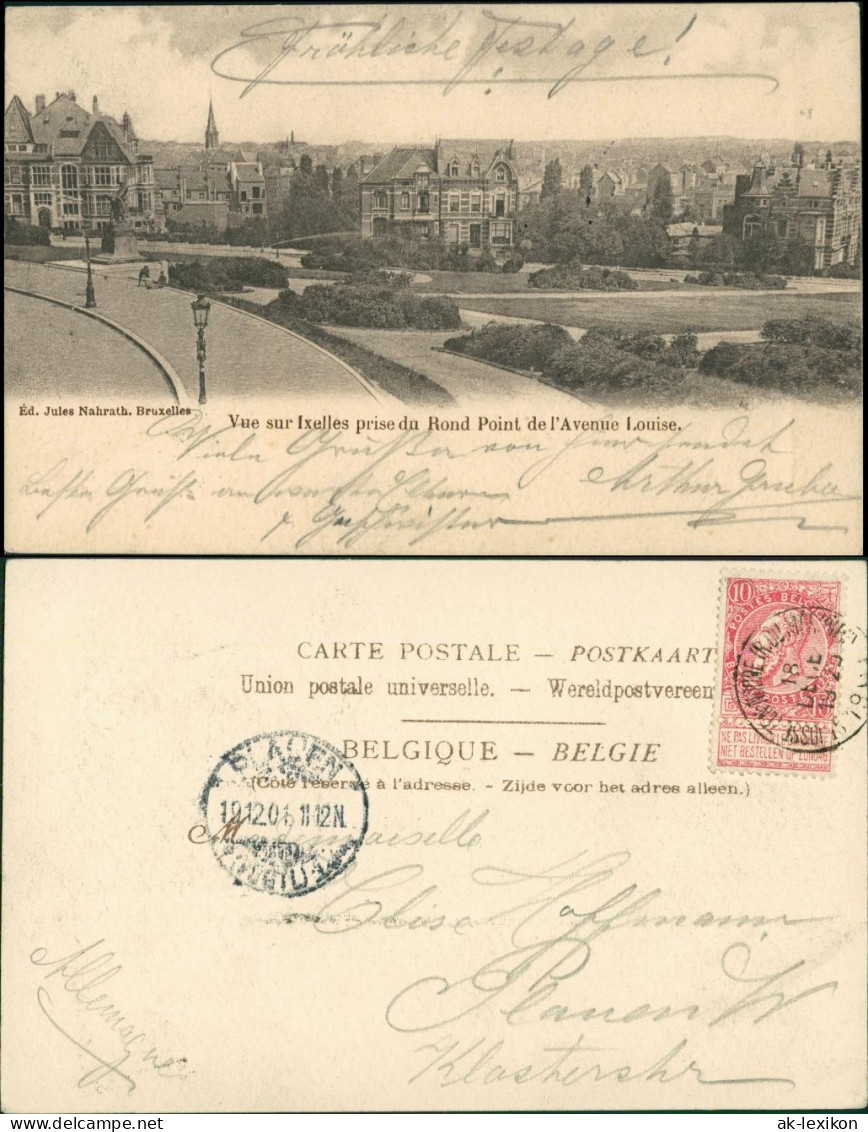 Fröhliche Festage!
Éd. Jules Nahrath. Bruxelles
Vue sur Ixelles prise du Rond Point de l'Avenue Louise.
Viele Grüße von
Beste Grüße an Eltern Arthur
& Geschwister
CARTE POSTALE — POSTKAART
Union postale universelle. — Wereldpostvereen
BELGIQUE — BELGIE
(Côté réservé à l'adresse. - Zijde voor het adres alleen.)
10
POSTES BELG
NE PAS LIVRER
NIET BESTELLEN OP ZONDAG
18
PLAUEN
19.12.01 11-12N.
(VOGTL)
Mademoiselle
Elise Hoffmann
Plauen i/V
Klosterstr
Allemagne
www.delcampe.net
ak-lexikon